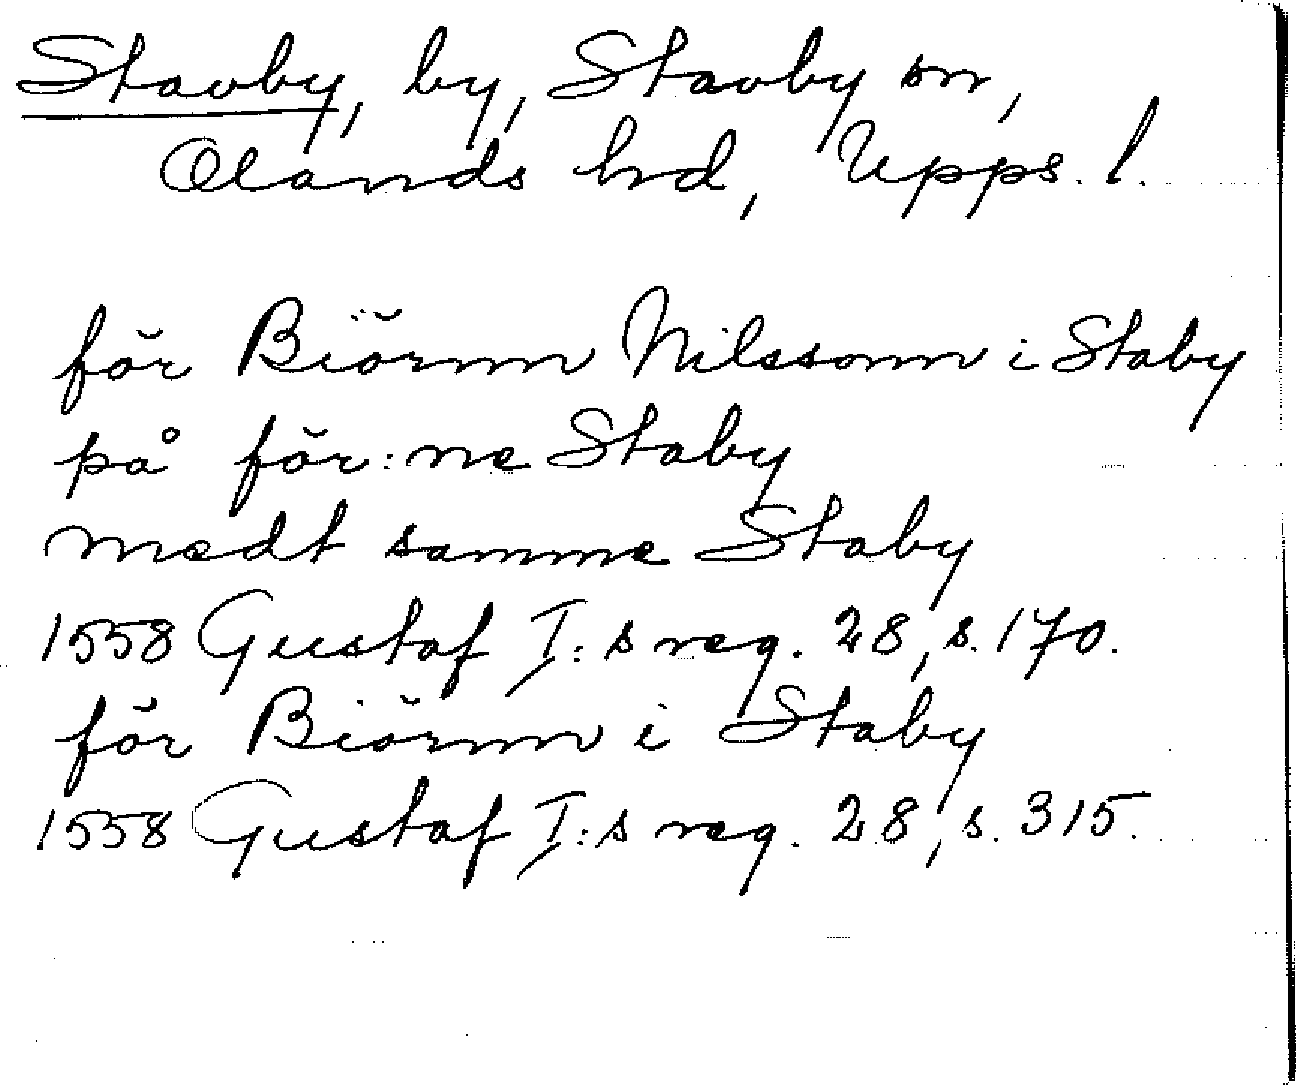 Stavby, by, Stavby sn,
Olands hd, Upps. l.
för Biörnn Nilssonn i Staby
på för:ne Staby
medt samme Staby
1558 Gustaf I:s reg. 28, s. 170.
för Biörnn i Staby
1558 Gustaf I:s reg. 28, s. 315.